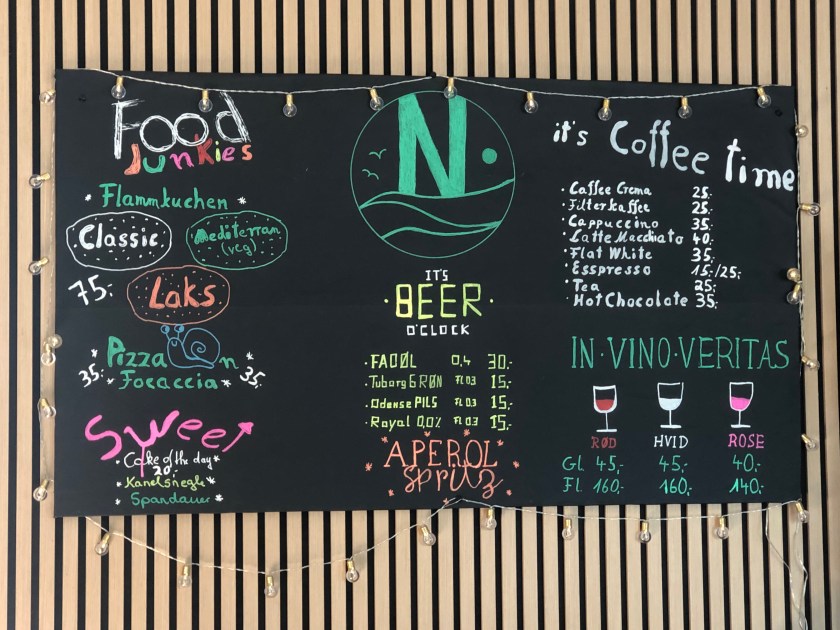 Food
Junkies
· Flammkuchen *
Classic
Mediterran
(veg)
75.-
Laks
Pizza
35:- Focaccia 35:-
Sweet
· Cake of the day
20,-
· Kanelsnegle
· Spandauer
N
IT'S
· BEER ·
O'CLOCK
· FADØL 0,4 30.-
· Tuborg GRØN FL 0.3 15,-
· Odense PILS FL 0.3 15,-
· Royal 0,0% FL 0.3 15,-
APEROL
Spritz
it's Coffee time
· Caffee Crema 25.-
· Filterkaffee 25.-
· Cappuccino 35.-
· Latte Macchiato 40.-
· Flat White 35.-
· Esspresso 15.-/25.-
· Tea 25.-
· Hot Chocolate 35.-
IN·VINO·VERITAS
RØD HVID ROSE
GL 45,- 45,- 40.-
FL 160.- 160.- 140.-